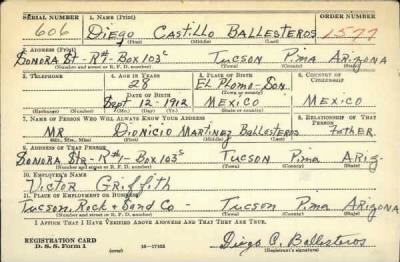 SERIAL NUMBER 1. NAME (Print) ORDER NUMBER
606 Diego Castillo BALLESTEROS 1577
(First) (Middle) (Last)
2. ADDRESS (Print)
Sonora St - R#1- Box 103c Tucson Pima Arizona
(Number and street or R. F. D. number) (Town) (County) (State)
3. TELEPHONE 4. AGE IN YEARS 5. PLACE OF BIRTH 6. COUNTRY OF CITIZENSHIP
28 EL Plomo - Son.
DATE OF BIRTH (Town or county)
Sept 12 - 1912 MEXICO MEXICO
(Exchange) (Number) (Mo.) (Day) (Yr.) (State or country)
7. NAME OF PERSON WHO WILL ALWAYS KNOW YOUR ADDRESS 8. RELATIONSHIP OF THAT PERSON
MR Dionicio Martinez Ballesteros Father
(Mr., Mrs., Miss) (First) (Middle) (Last)
9. ADDRESS OF THAT PERSON
Sonora Str - R#1- Box 103c Tucson Pima Ariz-
(Number and street or R. F. D. number) (Town) (County) (State)
10. EMPLOYER'S NAME
Victor Griffith
11. PLACE OF EMPLOYMENT OR BUSINESS
Tucson, Rock & Sand Co - Tucson Pima Arizona
(Number and street or R. F. D. number) (Town) (County) (State)
I AFFIRM THAT I HAVE VERIFIED ABOVE ANSWERS AND THAT THEY ARE TRUE.
REGISTRATION CARD
D. S. S. Form 1 (over) 16-17105 Diego C. Ballesteros
(Registrant's signature)